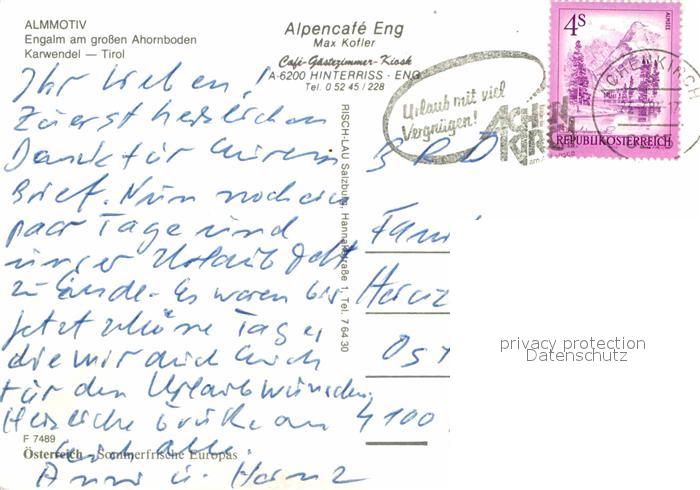 ALMMOTIV
Engalm am großen Ahornboden
Karwendel — Tirol
Alpencafé Eng
Max Kofler
Café-Gästezimmer-Kiosk
A-6200 HINTERRISS · ENG
Tel. 0 52 45 / 228
Urlaub mit viel
Vergnügen!
ACHEN
KIRCH
4S
ALMSEE
REPUBLIK ÖSTERREICH
ACHENKIRCH
Ihr Lieben!
Zuerst herzlichen
Dank für Euren
Brief. Nun noch ein
paar Tage und
unser Urlaub geht
zu Ende. Es waren bis
jetzt schöne Tage,
die wir auch Euch
für den Urlaub wünschen.
Herzliche Grüße an
Euch alle.
Anni u. Heinz
RISCH-LAU Salzburg, Hannakstraße 1, Tel. 7 64 30
BRD
Fami
Heinz
Ost
4100
privacy protection
Datenschutz
F 7489
Österreich - Sommerfrische Europas